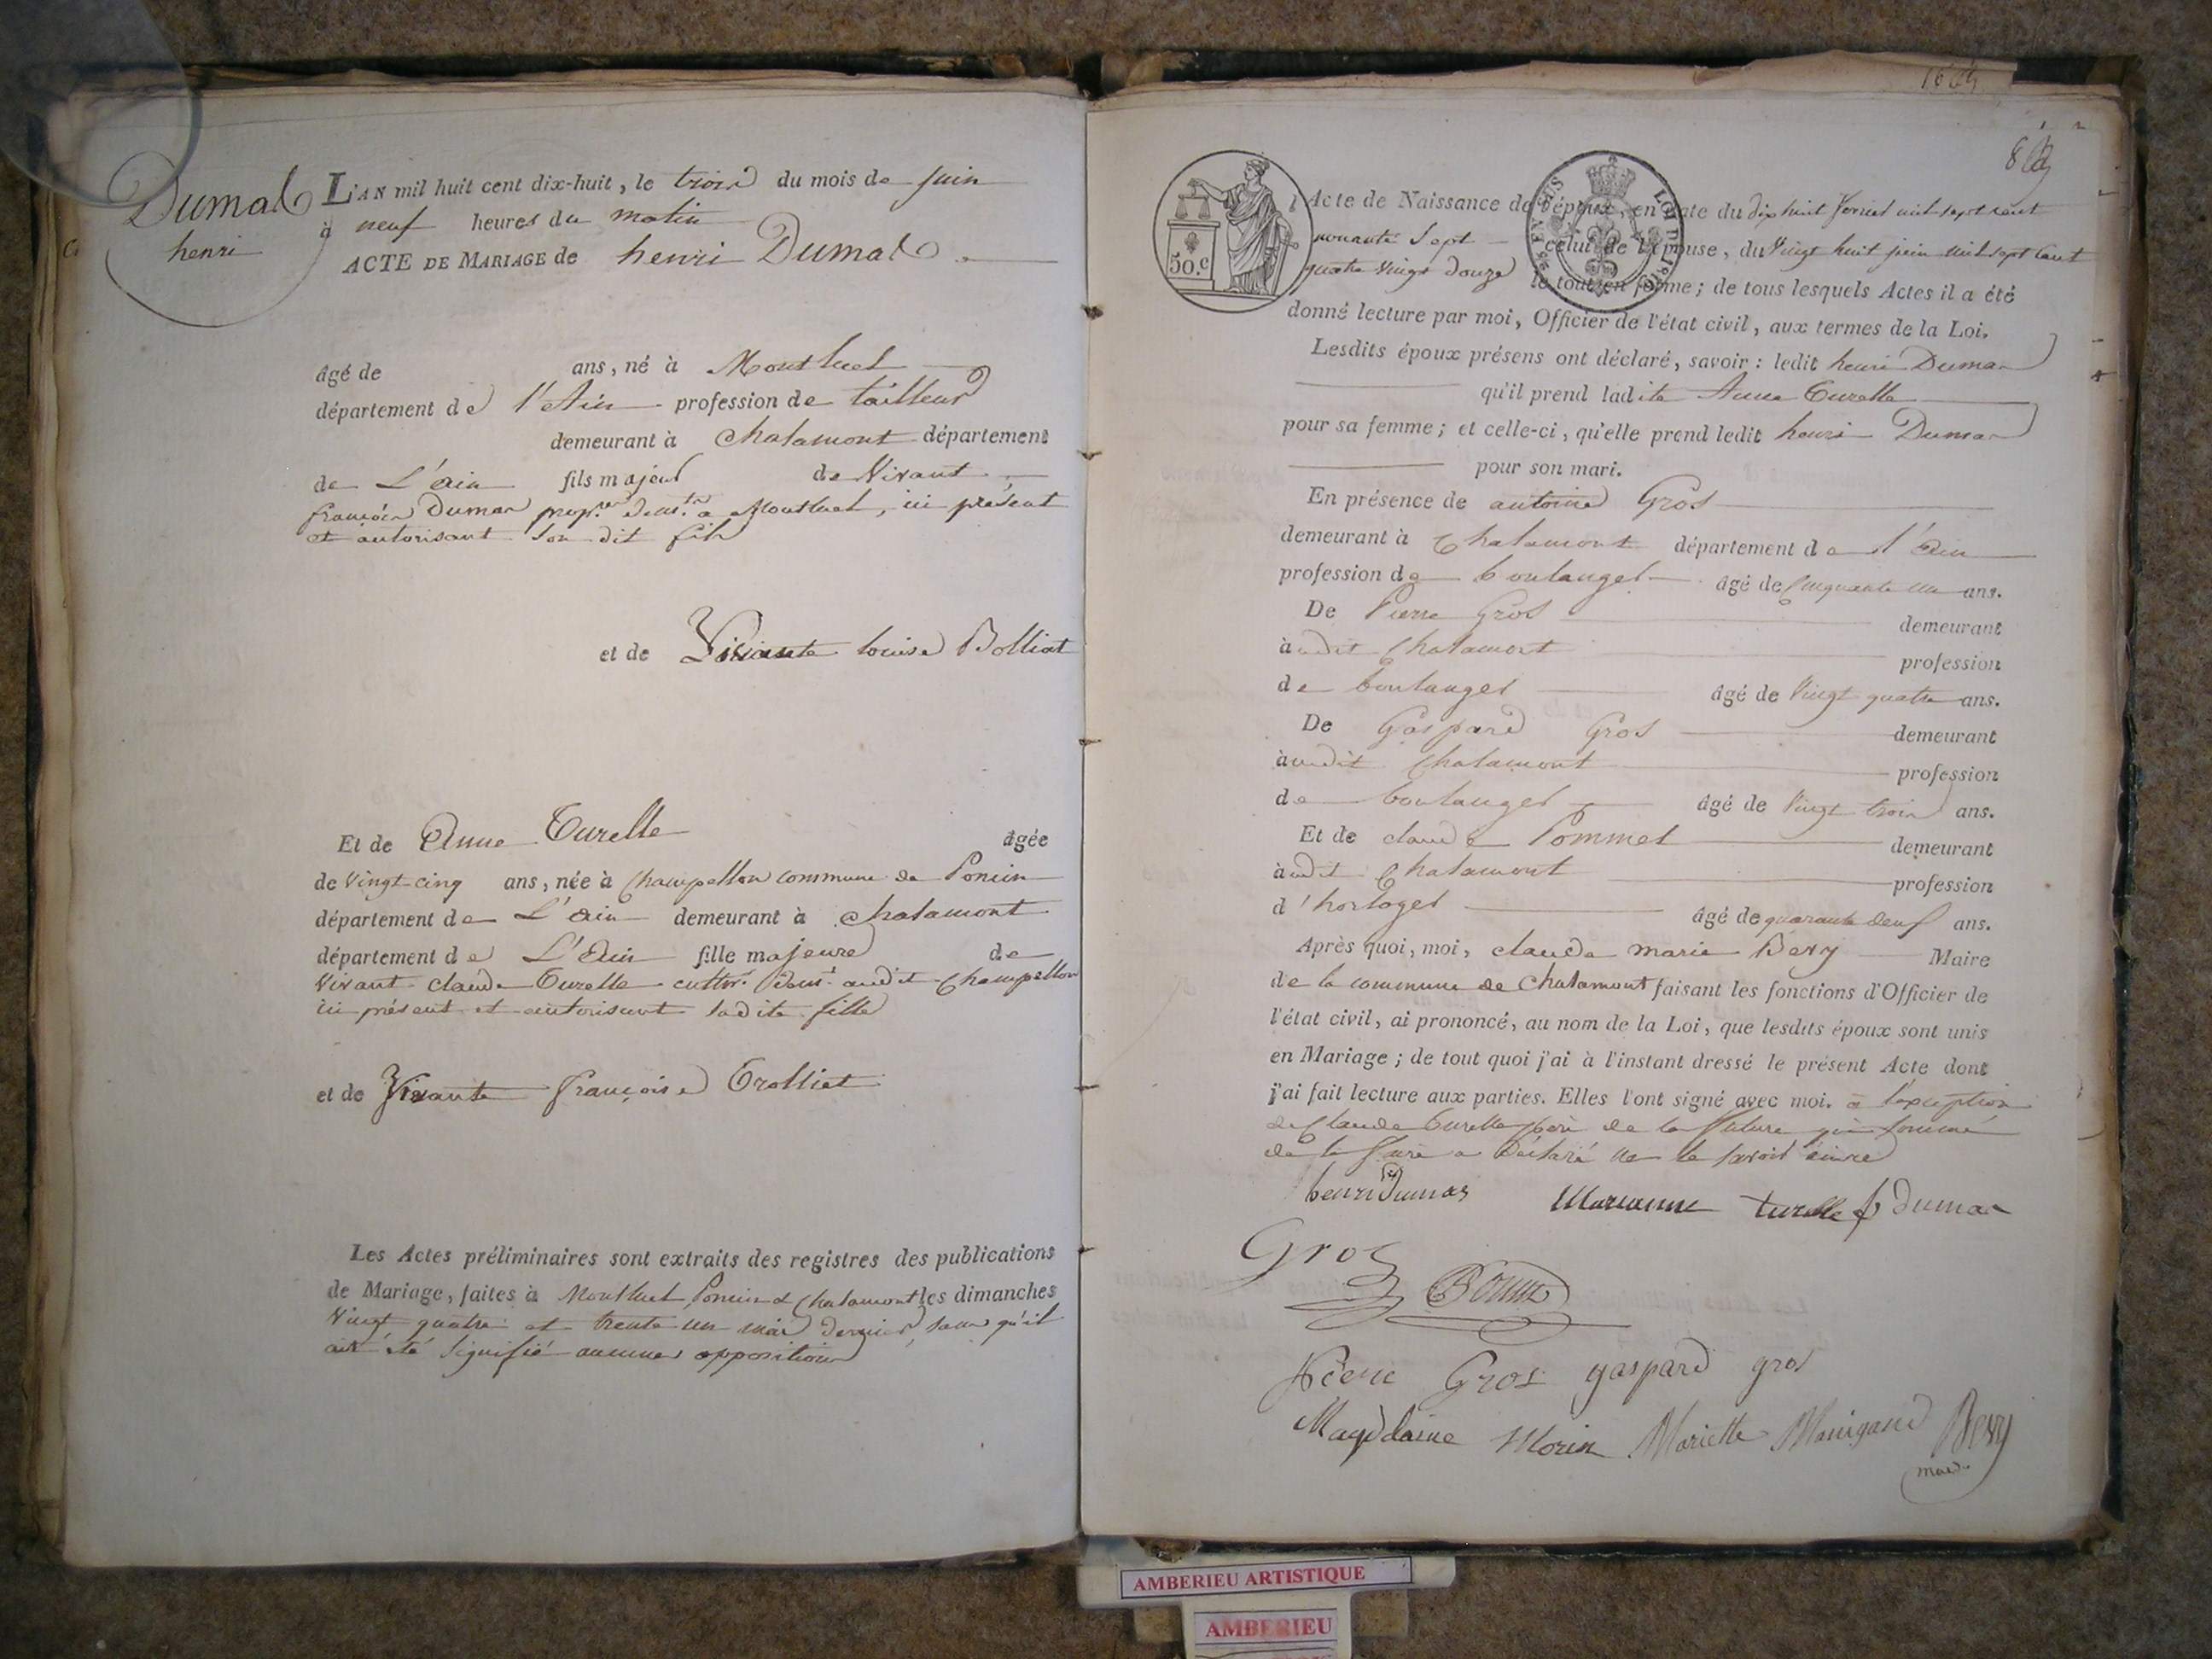 Dumas
henri
L'AN mil huit cent dix-huit, le trois du mois de juin
à neuf heures du matin
ACTE DE MARIAGE de henri Dumas
âgé de ans, né à Montluel
département de l'Ain profession de tailleur
demeurant à Chalamont département
de L'ain fils majeur de Vivant
françois Dumas propre. demt. a Montluel, ici présent
et autorisant son dit fils
et de Vivante louise Bolliat
Et de Anne Turelle âgée
de Vingt-cinq ans, née à Champollon commune de Poncin
département de L'ain demeurant à Chalamont
département de L'Ain fille majeure de
Vivant claude Turelle cultivr. demt. audit Champollon
ici présent et autorisant ladite fille
et de Vivante françoise Trolliet
Les Actes préliminaires sont extraits des registres des publications
de Mariage, faites à Montluel Poncin & Chalamont les dimanches
Vingt quatre et trente un mai dernier, sans qu'il
ait été signifié aucunes oppositions
50.c
l'Acte de Naissance de l'époux, en date du dix huit fevrier mil sept cent
nonante sept celui de l'épouse, du Vingt huit juin mil sept cent
quatre vingt douze le tout en forme; de tous lesquels Actes il a été
donné lecture par moi, Officier de l'état civil, aux termes de la Loi.
Lesdits époux présens ont déclaré, savoir: ledit henri Dumas
qu'il prend ladite Anne Turelle
pour sa femme; et celle-ci, qu'elle prend ledit henri Dumas
pour son mari.
En présence de antoine Gros
demeurant à Chalamont département de l'ain
profession de boulanger âgé de Cinquante un ans.
De Pierre Gros demeurant
à udit Chalamont profession
de boulanger âgé de Vingt quatre ans.
De Gaspard Gros demeurant
à udit Chalamont profession
de boulanger âgé de Vingt trois ans.
Et de claude Pommet demeurant
à udit Chalamont profession
d'horloger âgé de quarante deux ans.
Après quoi, moi, claude marie Bevy Maire
de la commune de Chalamont faisant les fonctions d'Officier de
l'état civil, ai prononcé, au nom de la Loi, que lesdits époux sont unis
en Mariage; de tout quoi j'ai à l'instant dressé le présent Acte dont
j'ai fait lecture aux parties. Elles l'ont signé avec moi. à l'exception
de Claude Turelle père de la future qui sommé
de le faire a déclaré ne le savoir écrire
henri Dumas Marianne turelle f Dumas
Gros
Pierre Gros gaspard gros
Magdelaine Morin Mariette Manigand Bevy
maire
AMBERIEU ARTISTIQUE
AMBERIEU